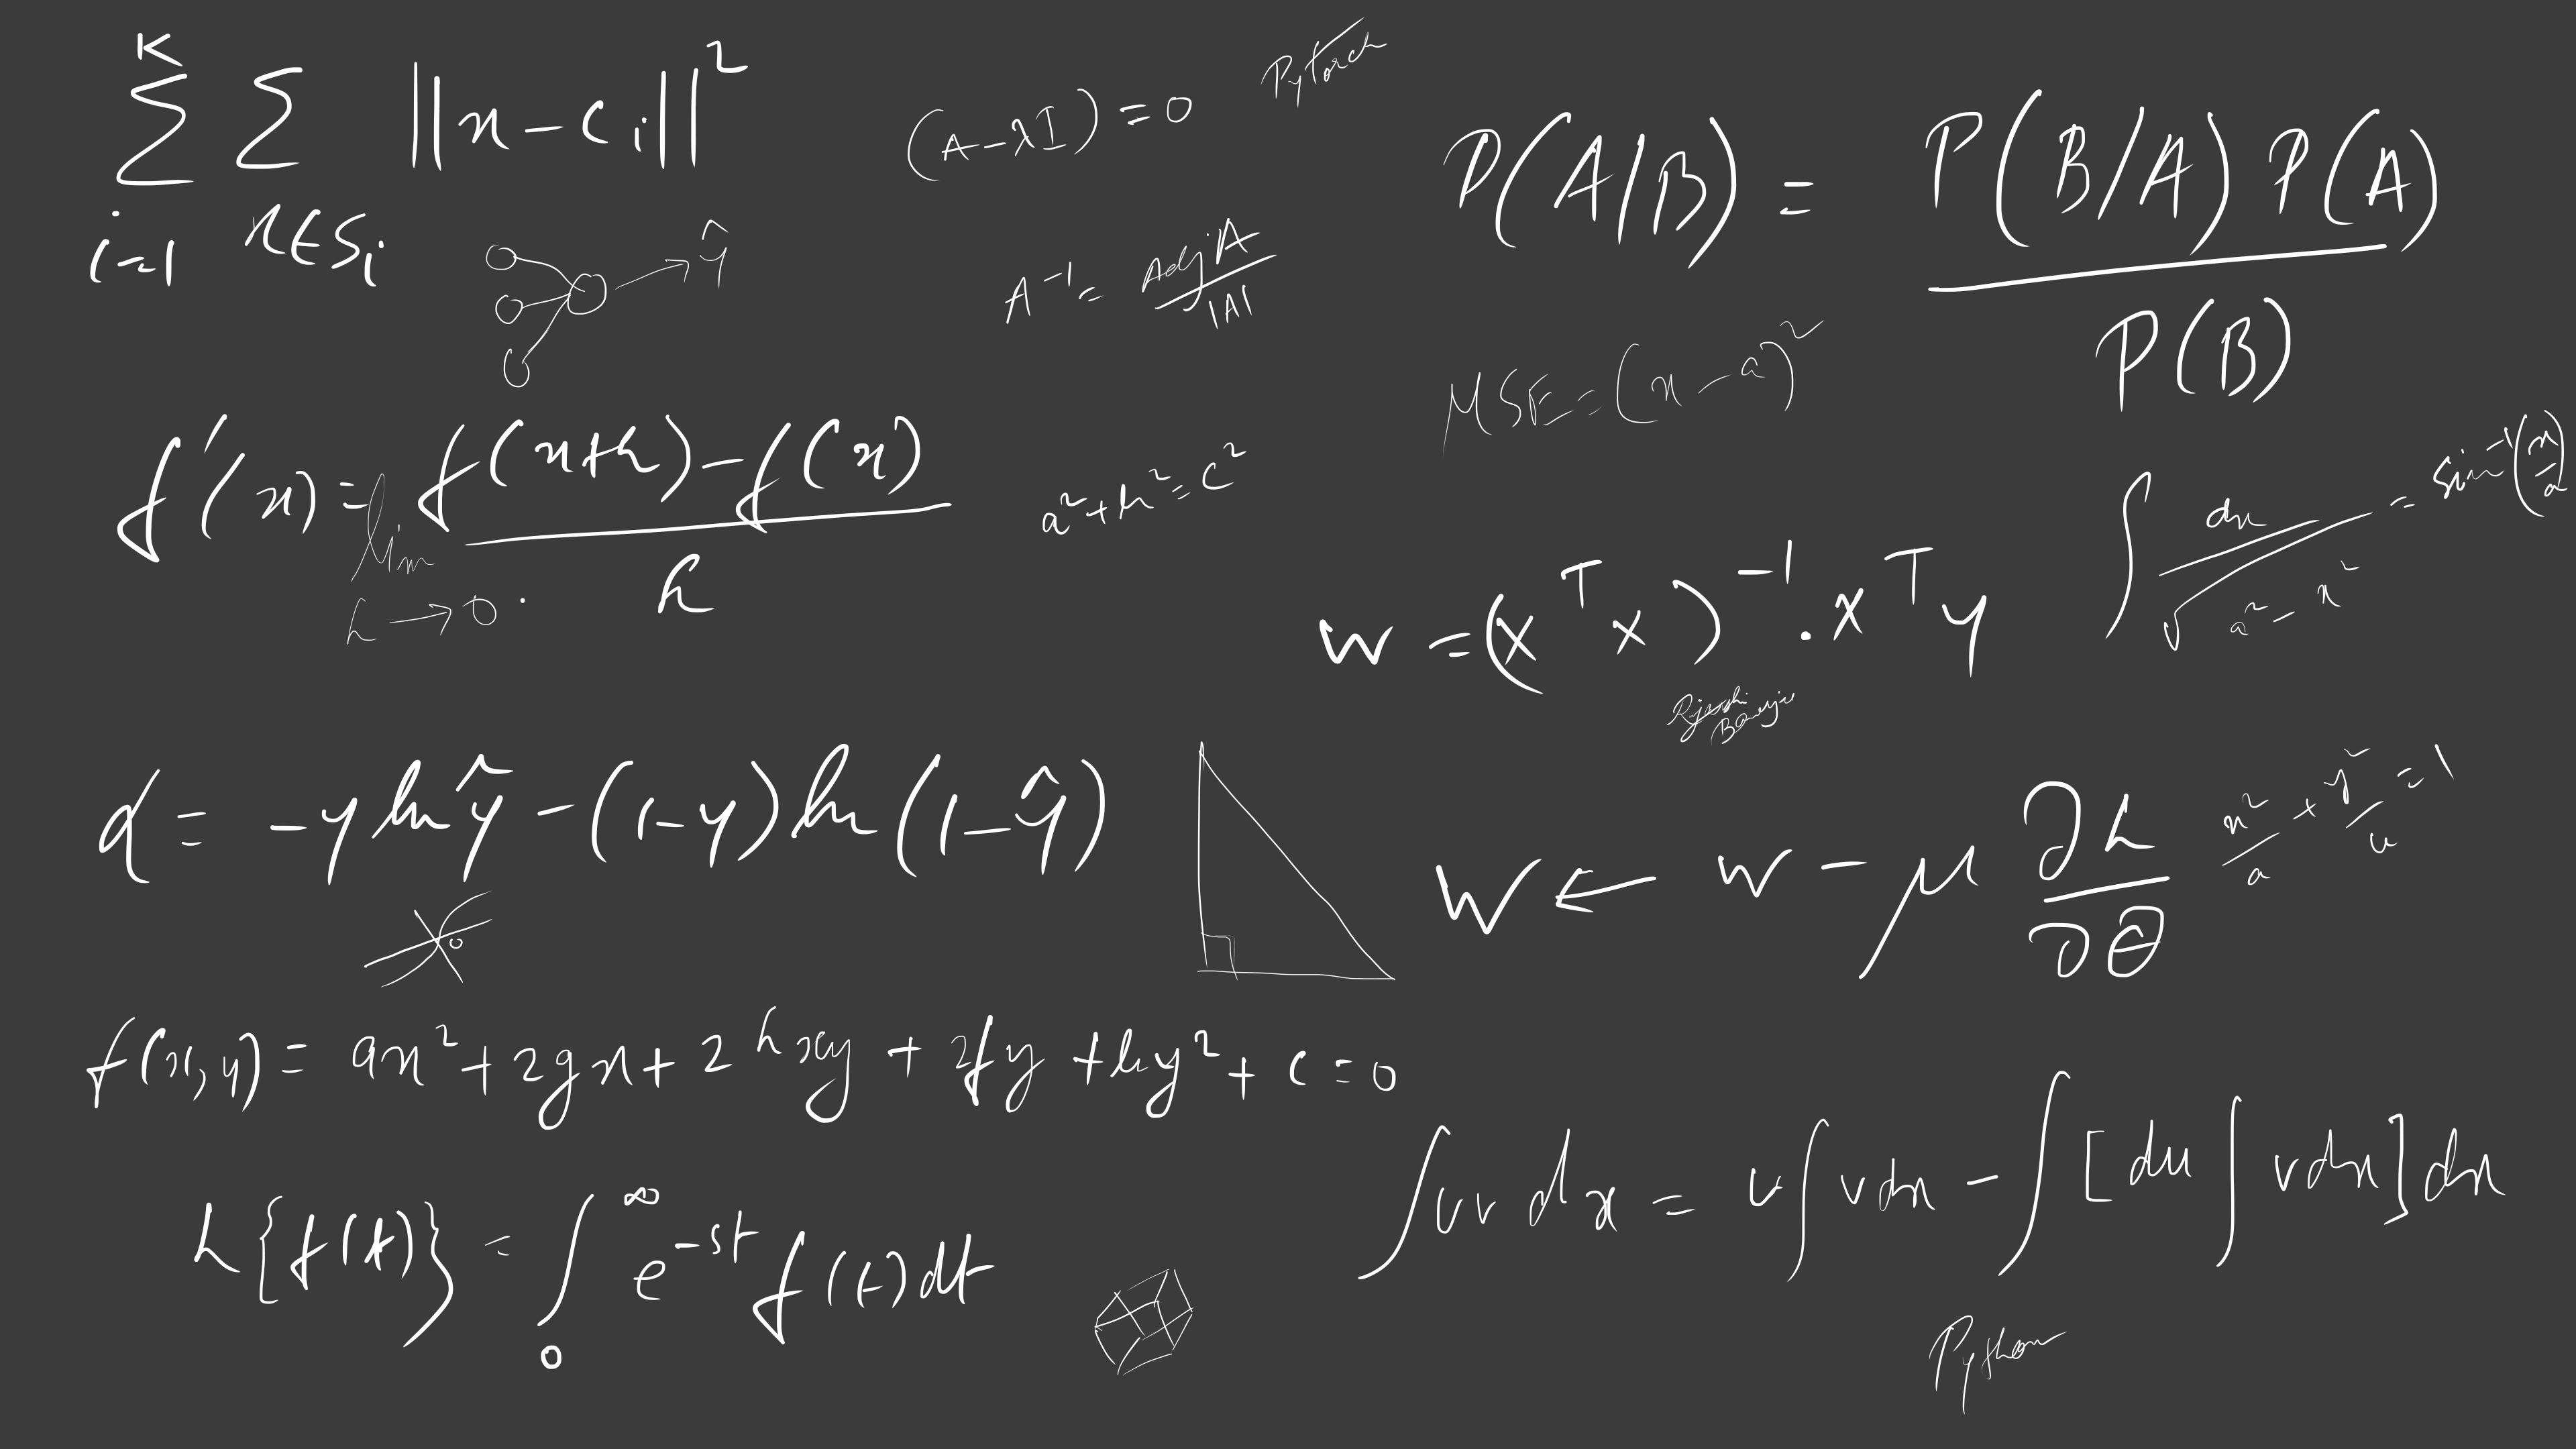 K
∑ ∑ ||x-c_i||²
i=1 x∈S_i
(A-λI)=0
PyTorch
P(A/B) = P(B/A) P(A) / P(B)
ŷ
A⁻¹ = Adj A / |A|
MSE = (x-a)²
f'(x) = lim h→0 f(x+h)-f(x) / h
a²+b²=c²
∫ dx / √a²-x² = sin⁻¹(x/a)
w = (X^T X)⁻¹ . X^T y
Banerjee
L = -y ln ŷ - (1-y) ln (1-ŷ)
W ← w - μ ∂L/∂θ
x²/a + y²/b = 1
f(x,y) = ax²+2gx+2hxy+2fy+by²+c=0
∫uv dx = u∫vdx - ∫[du∫vdx]dx
L{f(t)} = ∫₀^∞ e^-st f(t)dt
Python